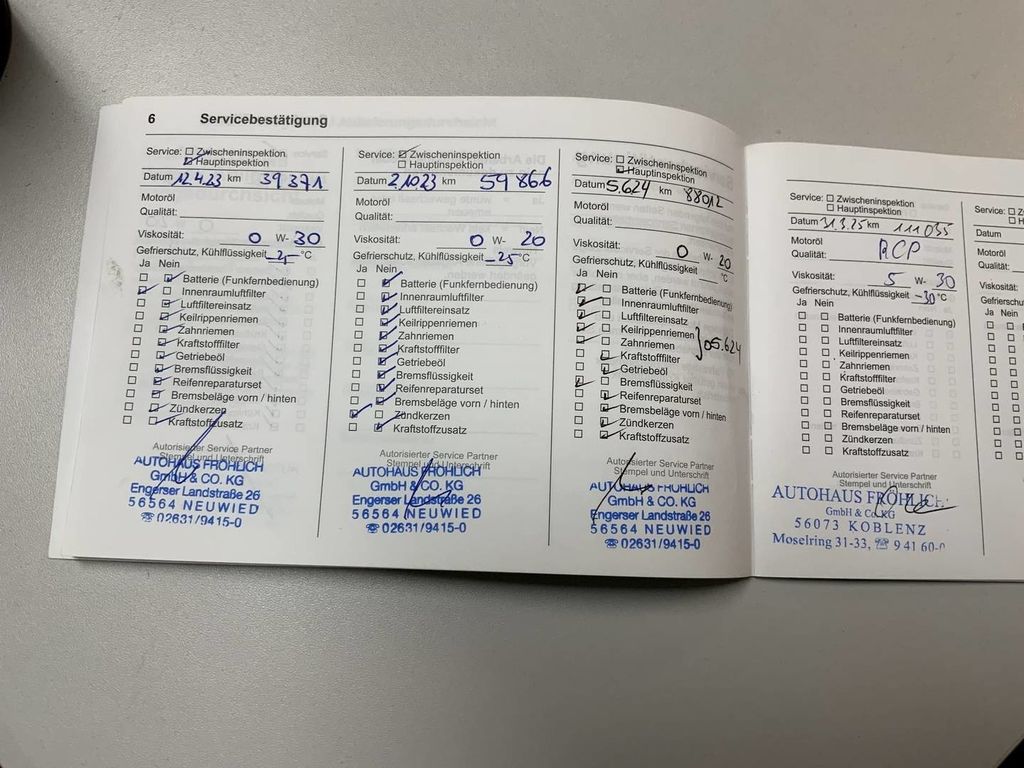 6 Servicebestätigung
Service: Zwischeninspektion
Hauptinspektion
Datum 12.4.23 km 39371
Motoröl
Qualität:
Viskosität: 0 W- 30
Gefrierschutz, Kühlflüssigkeit -25 °C
Ja Nein
Batterie (Funkfernbedienung)
Innenraumluftfilter
Luftfiltereinsatz
Keilrippenriemen
Zahnriemen
Kraftstofffilter
Getriebeöl
Bremsflüssigkeit
Reifenreparaturset
Bremsbeläge vorn / hinten
Zündkerzen
Kraftstoffzusatz
Autorisierter Service Partner
Stempel und Unterschrift
AUTOHAUS FRÖHLICH
GmbH & CO. KG
Engerser Landstraße 26
56564 NEUWIED
☏ 02631/9415-0
Service: Zwischeninspektion
Hauptinspektion
Datum 2.10.23 km 59866
Motoröl
Qualität:
Viskosität: 0 W- 20
Gefrierschutz, Kühlflüssigkeit -25 °C
Ja Nein
Batterie (Funkfernbedienung)
Innenraumluftfilter
Luftfiltereinsatz
Keilrippenriemen
Zahnriemen
Kraftstofffilter
Getriebeöl
Bremsflüssigkeit
Reifenreparaturset
Bremsbeläge vorn / hinten
Zündkerzen
Kraftstoffzusatz
Autorisierter Service Partner
Stempel und Unterschrift
AUTOHAUS FRÖHLICH
GmbH & CO. KG
Engerser Landstraße 26
56564 NEUWIED
☏ 02631/9415-0
Service: Zwischeninspektion
Hauptinspektion
Datum 5.624 km 88012
Motoröl
Qualität:
Viskosität: 0 W- 20
Gefrierschutz, Kühlflüssigkeit °C
Ja Nein
Batterie (Funkfernbedienung)
Innenraumluftfilter
Luftfiltereinsatz
Keilrippenriemen
Zahnriemen } 05.624
Kraftstofffilter
Getriebeöl
Bremsflüssigkeit
Reifenreparaturset
Bremsbeläge vorn / hinten
Zündkerzen
Kraftstoffzusatz
Autorisierter Service Partner
Stempel und Unterschrift
AUTOHAUS FRÖHLICH
GmbH & CO. KG
Engerser Landstraße 26
56564 NEUWIED
☏ 02631/9415-0
Service: Zwischeninspektion
Hauptinspektion
Datum 31.3.25 km 111035
Motoröl
Qualität: RCP
Viskosität: 5 W- 30
Gefrierschutz, Kühlflüssigkeit -30 °C
Ja Nein
Batterie (Funkfernbedienung)
Innenraumluftfilter
Luftfiltereinsatz
Keilrippenriemen
Zahnriemen
Kraftstofffilter
Getriebeöl
Bremsflüssigkeit
Reifenreparaturset
Bremsbeläge vorn / hinten
Zündkerzen
Kraftstoffzusatz
Autorisierter Service Partner
Stempel und Unterschrift
AUTOHAUS FRÖHLICH
GmbH & Co. KG
56073 KOBLENZ
Moselring 31-33, ☏ 9 41 60-0
Service: Z
Datum
Motoröl
Qualität:
Viskosität:
Ja Nein